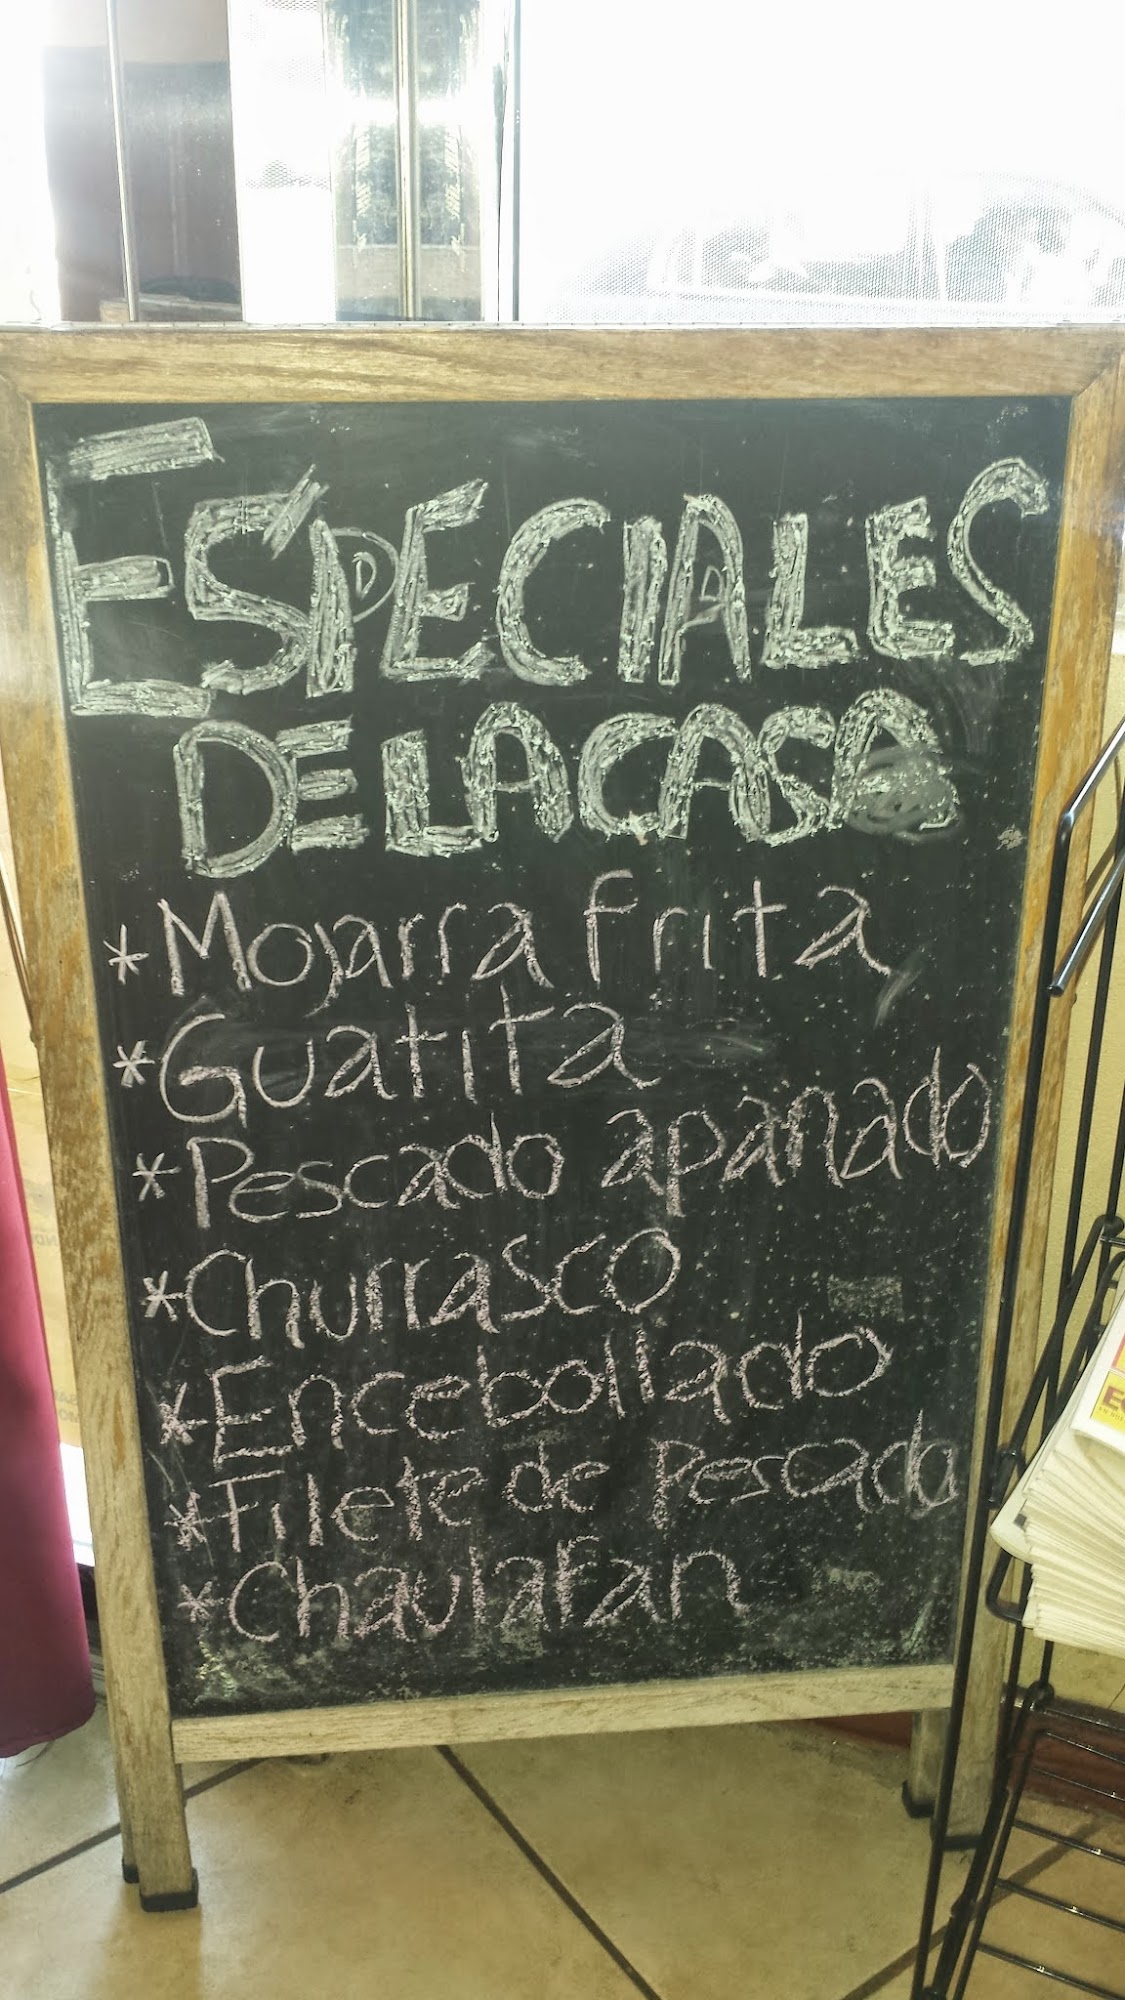 ESPECIALES
DE LA CASA
* Mojarra frita
* Guatita
* Pescado apanado
* Churrasco
* Encebollado
* Filete de Pescado
* Chaulafan